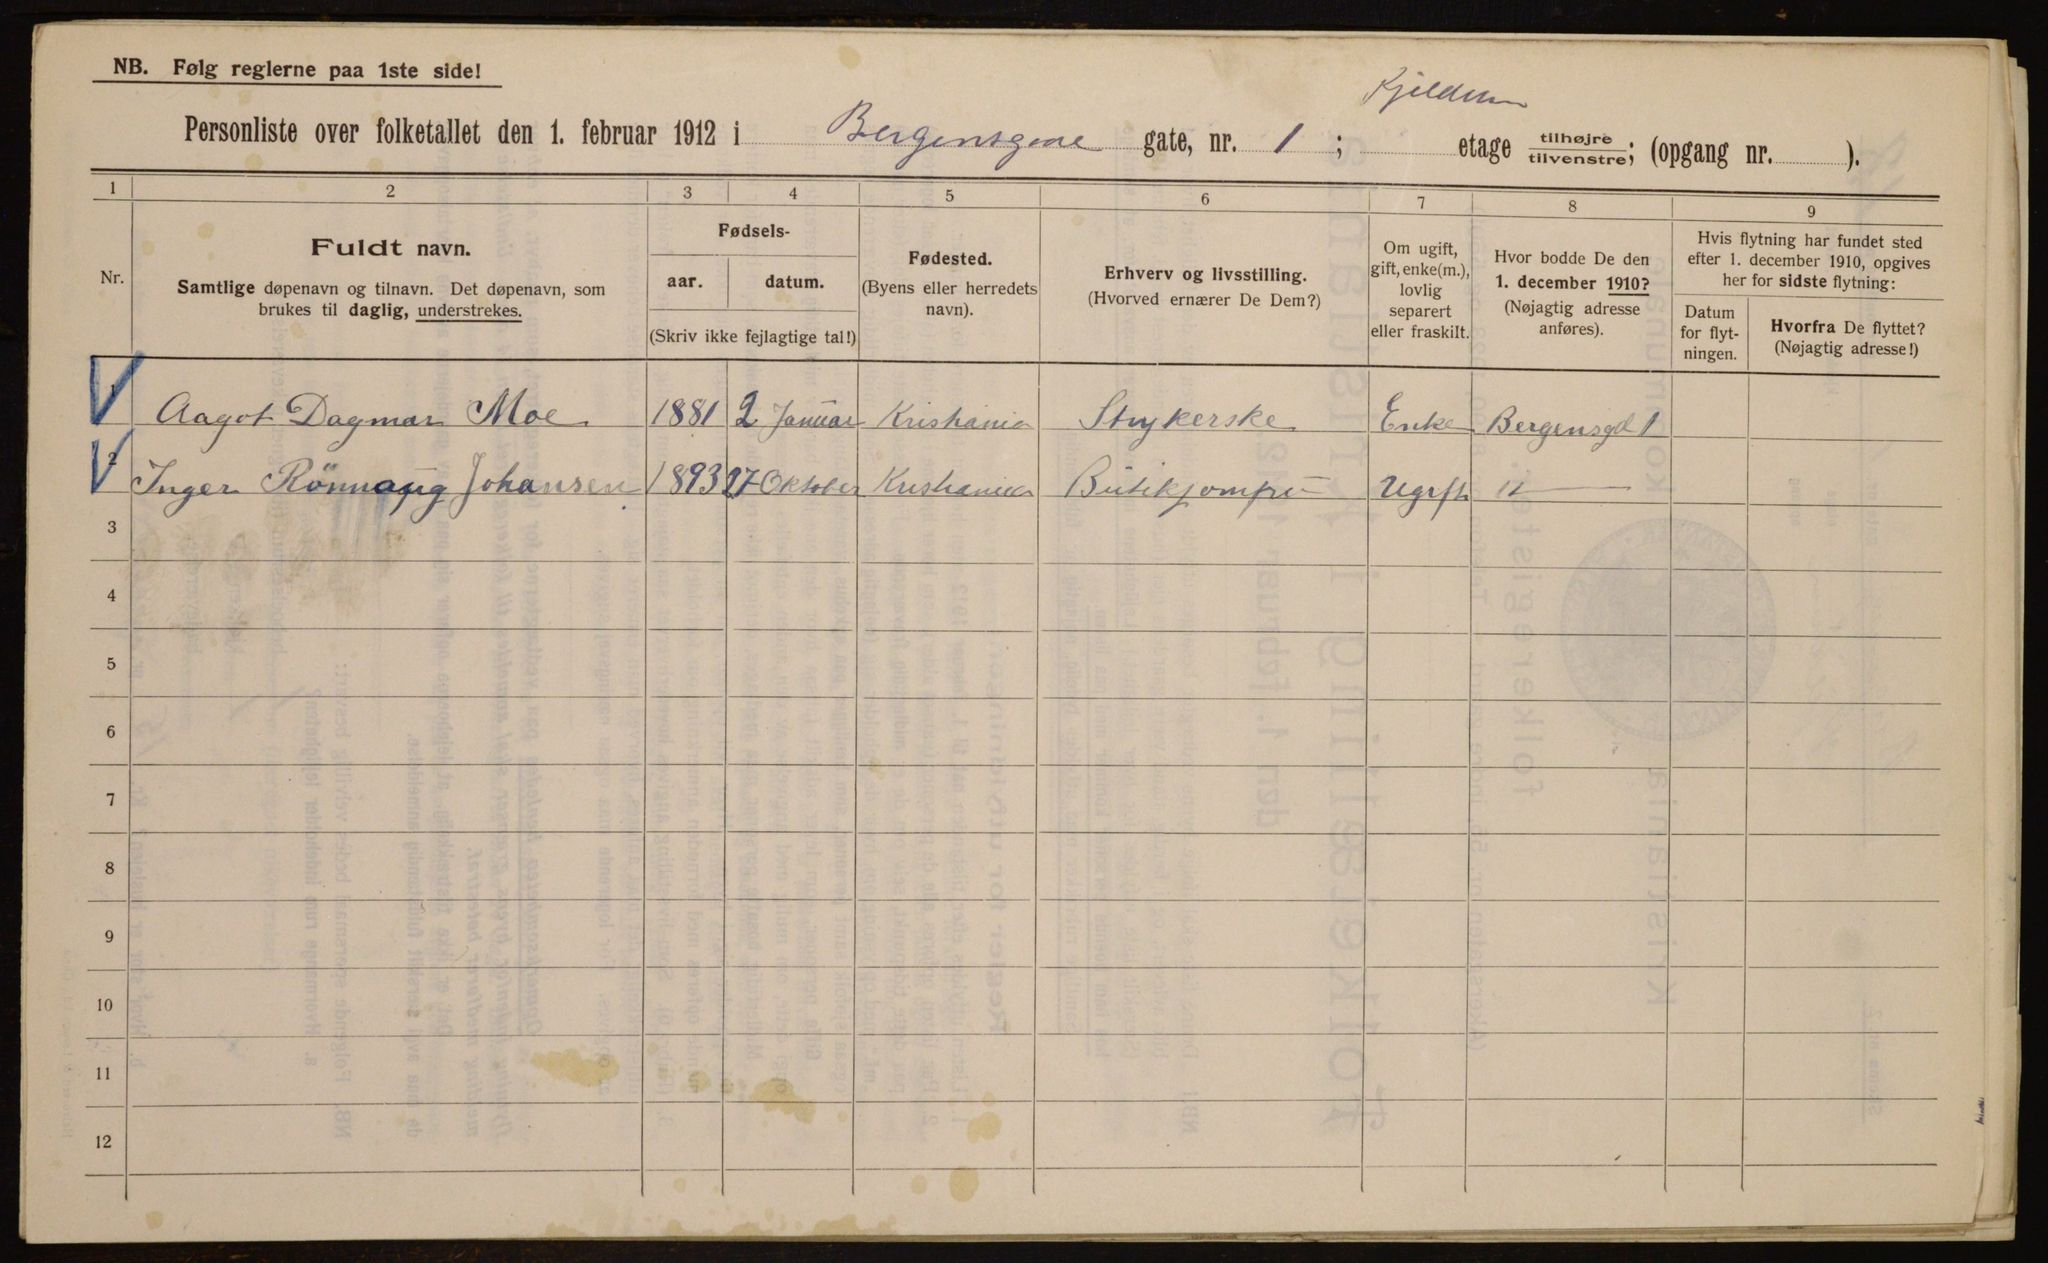 NB. Følg reglerne paa 1ste side!
Kjelderen
Personliste over folketallet den 1. februar 1912 i Bergensgade gate, nr. 1 ; etage tilhøjre/tilvenstre; (opgang nr. ).
1 2 3 4 5 6 7 8 9
Nr.
Fuldt navn.
Samtlige døpenavn og tilnavn. Det døpenavn, som
brukes til daglig, understrekes.
Fødsels-
aar. datum.
(Skriv ikke fejlagtige tal!)
Fødested.
(Byens eller herredets
navn).
Erhverv og livsstilling.
(Hvorved ernærer De Dem?)
Om ugift,
gift, enke(m.),
lovlig
separert
eller fraskilt.
Hvor bodde De den
1. december 1910?
(Nøjagtig adresse
anføres).
Hvis flytning har fundet sted
efter 1. december 1910, opgives
her for sidste flytning:
Datum
for flyt-
ningen.
Hvorfra De flyttet?
(Nøjagtig adresse!)
1 Aagot Dagmar Moe 1881 2 Januar Kristiania Strykerske Enke Bergensgd 1
2 Inger Rönnaug Johansen 1893 27 Oktober Kristiania Butikjomfru Ugift "
3
4
5
6
7
8
9
10
11
12